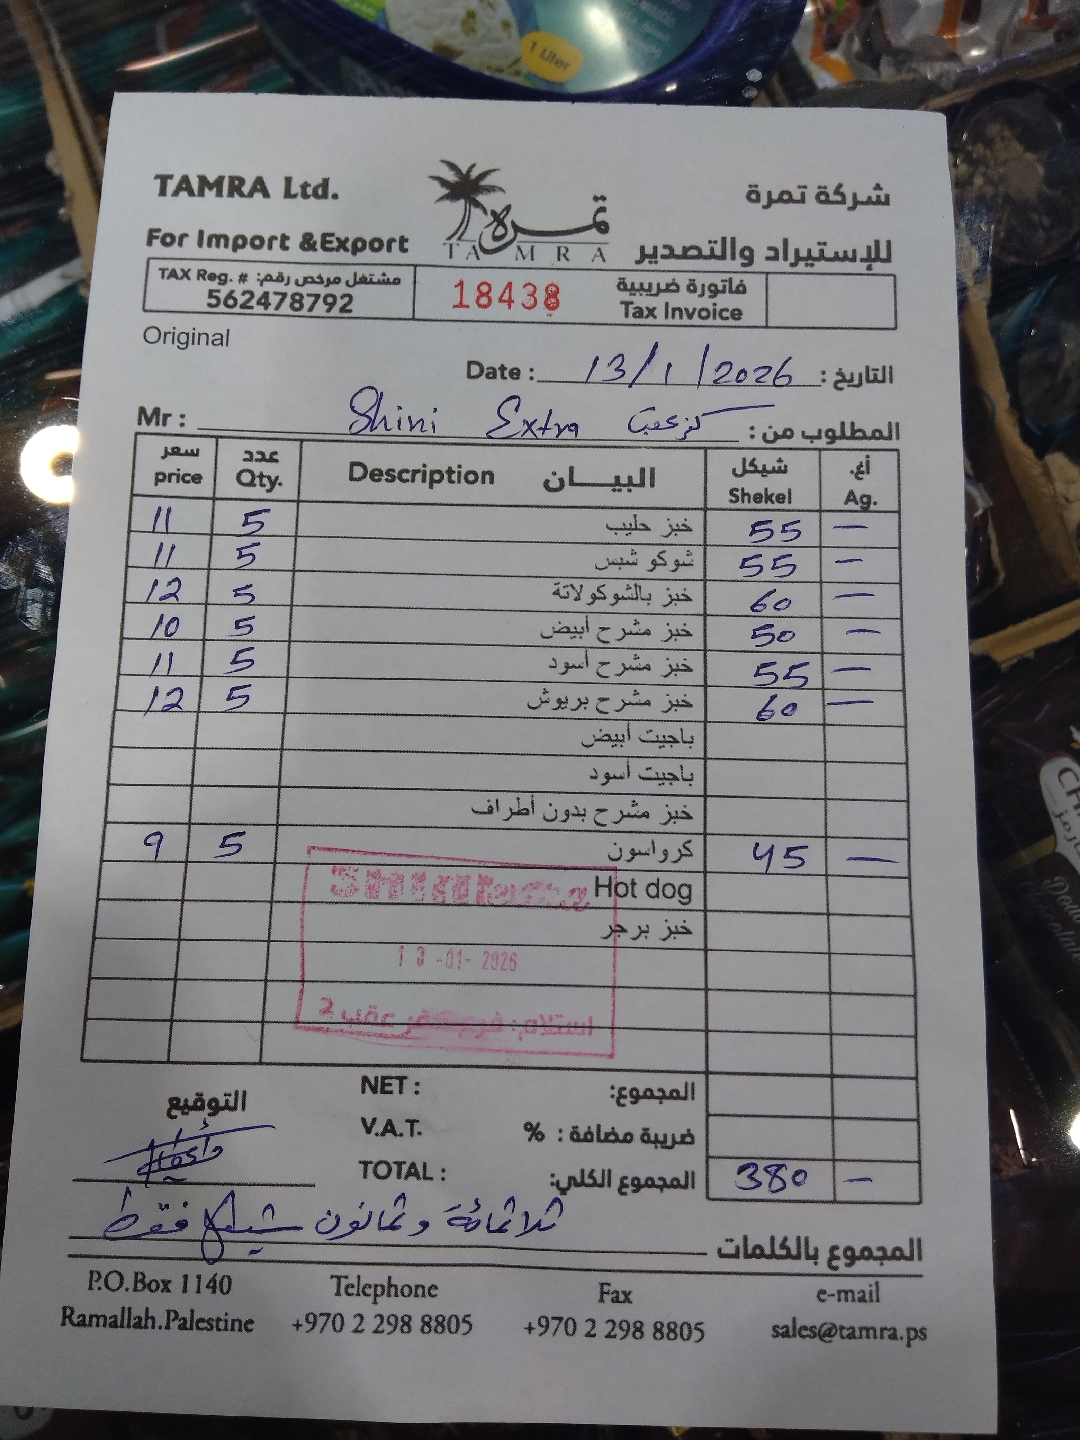 1 Liter
TAMRA Ltd.
شركة تمرة
For Import &Export
تمره
TAMRA
للإستيراد والتصدير
TAX Reg. # :مشتغل مرخص رقم
562478792
18438
فاتورة ضريبية
Tax Invoice
Original
Date : 13/1/2026 التاريخ :
Mr : Shini Extra المطلوب من :
سعر price عدد Qty. Description البيـــان شيكل Shekel أغ. Ag.
11 5 خبز حليب 55 —
11 5 شوكو شبس 55 —
12 5 خبز بالشوكولاتة 60 —
10 5 خبز مشرح أبيض 50 —
11 5 خبز مشرح أسود 55 —
12 5 خبز مشرح بريوش 60 —
باجيت أبيض
باجيت أسود
خبز مشرح بدون أطراف
9 5 كرواسون 45 —
Hot dog
خبز برجر
13 -01- 2026
استلام: عقب 2
NET : المجموع:
V.A.T. ضريبة مضافة : %
TOTAL : المجموع الكلي: 380 —
التوقيع
ثلاثمائة وثمانون شيكل فقط
المجموع بالكلمات
P.O.Box 1140 Telephone Fax e-mail
Ramallah.Palestine +970 2 298 8805 +970 2 298 8805 sales@tamra.ps